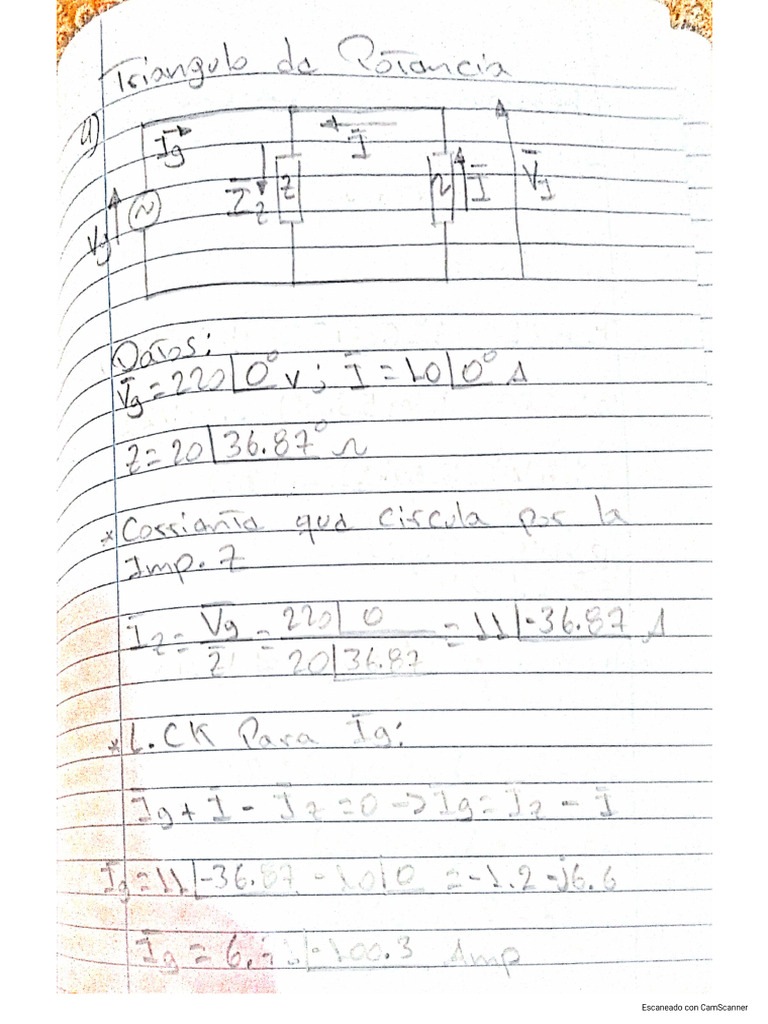 Triangulo de Potencia
4)
Ig
I
Vg
Iz
Z
I
Vg
Datos:
Vg = 220∟0° V ; I = 10∟0° A
Z = 20∟36.87° Ω
* Corriente que circula por la
Imp. Z
Iz = Vg/Z = 220∟0/20∟36.87 = 11∟-36.87 A
* L.CK Para Ig:
Ig + I - Iz = 0 -> Ig = Iz - I
Ig = 11∟-36.87 - 10∟0 = -1.2 - j6.6
Ig = ∟-100.3 Amp
Escaneado con CamScanner